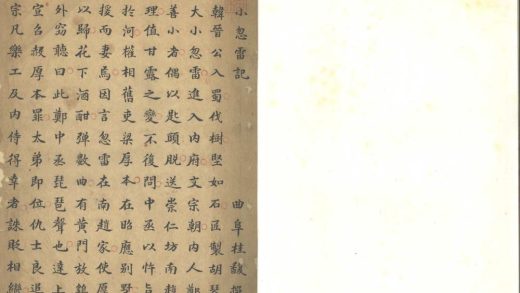 小忽雷記
曲阜桂馥撰
韓晉公入蜀伐樹堅如石匠製胡琴
大小忽雷進入內府文宗朝內人鄭
善小者偶以匙頭脫送崇仁坊南趙
理值甘露之變不復問中丞以忤旨
於河權相舊吏梁厚本在昭應別墅
援而妻焉因言忽雷在南趙家使厚
以歸花下酒酣彈數曲有黃門放鷂
外竊聽曰此鄭中丞琵琶聲也達上
宣召赦厚本罪太弟即位仇士良追
宗凡樂工及內侍得幸者誅貶相繼